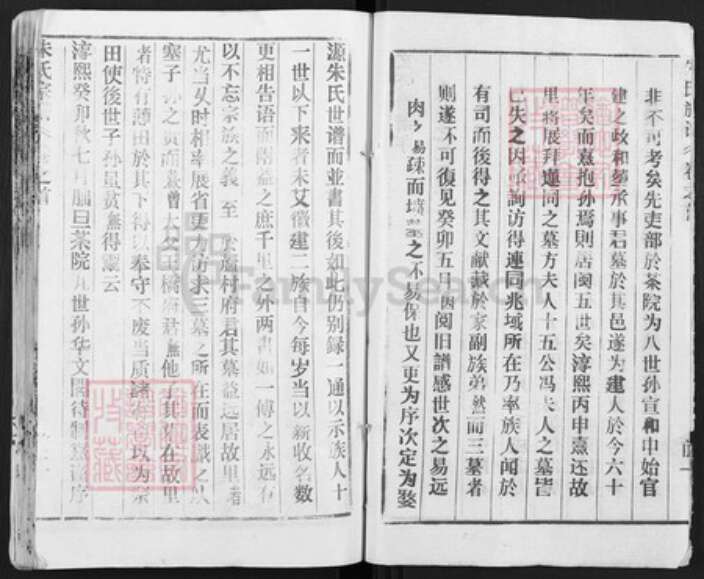 非不可考矣先吏部於茶院为八世孙宣和中始官
建之政和葬承事君墓於其邑遂为建人於今六十
年矣而熹抱孙焉則唐閩五世矣淳熙丙申熹还故
里将展拜連同之墓方夫人十五公冯夫人之墓皆
已失之因询访得連同兆域所在乃率族人闻於
有司而後得之其文献藏於家副族弟然而三墓者
則遂不可復见癸卯五月因阅旧譜感世次之易远
肉之易疎而坟墓之不易保也又更为序次定为婺
源朱氏世谱而並書其後如此仍别録一通以示族人十
一世以下来者未艾徽建二族自今每岁当以新收名数
更相告语而附益之庶千里之外两書如一傅之永远有
以不忘宗族之义至於府君其墓益远居故里者
尤当以时相率展省更力访求三墓之所在而表識之以
塞子孙之责而熹曾大父王橋府君無他子其墓在故里
者特有薄田於其下得以奉守不废当质諸以为祭
田使後世子孙虽贫無得鬻云
淳熙癸卯秋七月朔日茶院九世孙华文閣待制熹谨序
朱氏宗
FamilySearch